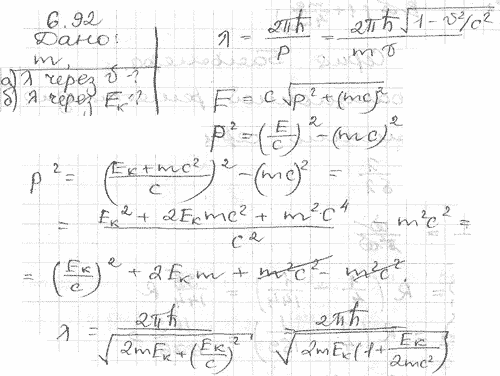 6.92
Дано:
m,
а) λ через υ-?
б) λ через Eк?
λ = 2πħ/p = 2πħ√(1 - υ²/c²)/(mυ)
E = c√(p² + (mc)²)
p² = (E/c)² - (mc)²
p² = ((Eк + mc²)/c)² - (mc)² =
= (Eк² + 2Eк mc² + m²c⁴)/c² - m²c² =
= (Eк/c)² + 2Eк m + m²c² - m²c².
λ = 2πħ/√(2mEк + (Eк/c)²) = 2πħ/√(2mEк(1 + Eк/(2mc²)))